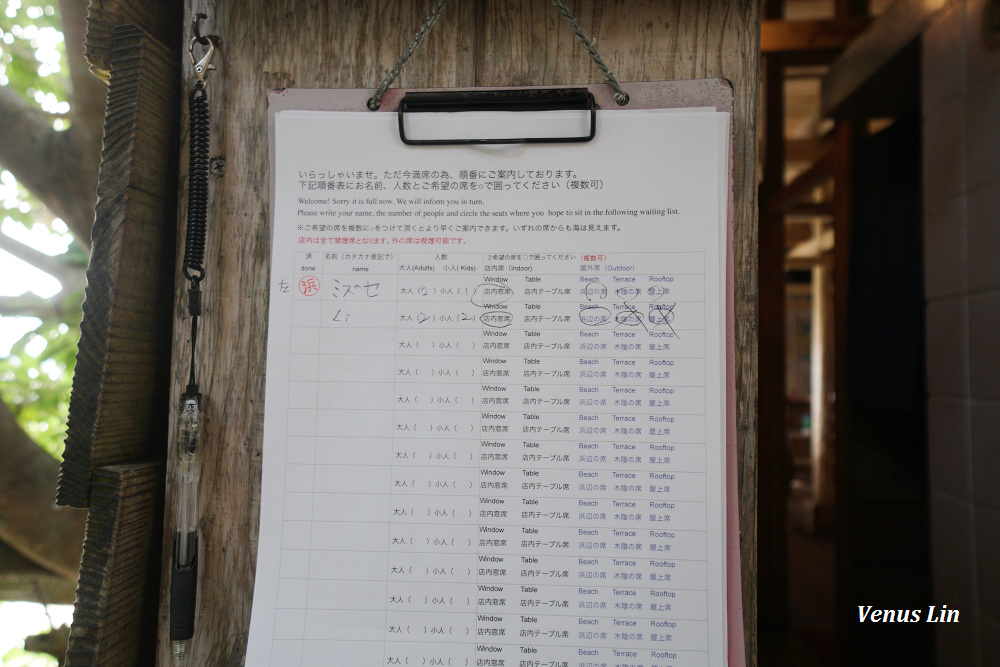 いらっしゃいませ。ただ今満席の為、順番にご案内しております。
下記順番表にお名前、人数とご希望の席を○で囲ってください（複数可）
Welcome! Sorry it is full now. We will inform you in turn.
Please write your name, the number of people and circle the seats where you hope to sit in the following waiting list.
※ご希望の席を複数に○をつけて頂くとより早くご案内できます。いずれの席からも海は見えます。
店内は全て禁煙席となります。外の席は喫煙可能です。
済 名前（カタカナ表記で） 人数 ご希望の席を○で囲ってください（複数可）
done name 大人(Adults) 小人(Kids) 店内席（Indoor） 屋外席（Outdoor）
Window Table Beach Terrace Rooftop
左 浜 ミズセ 大人（2）小人（1） 店内窓席 店内テーブル席 浜辺の席 木陰の席 屋上席
Window Table Beach Terrace Rooftop
Li 大人（2）小人（2） 店内窓席 店内テーブル席 浜辺の席 木陰の席 屋上席
Window Table Beach Terrace Rooftop
大人（ ）小人（ ） 店内窓席 店内テーブル席 浜辺の席 木陰の席 屋上席
Window Table Beach Terrace Rooftop
大人（ ）小人（ ） 店内窓席 店内テーブル席 浜辺の席 木陰の席 屋上席
Window Table Beach Terrace Rooftop
大人（ ）小人（ ） 店内窓席 店内テーブル席 浜辺の席 木陰の席 屋上席
Window Table Beach Terrace Rooftop
大人（ ）小人（ ） 店内窓席 店内テーブル席 浜辺の席 木陰の席 屋上席
Window Table Beach Terrace Rooftop
大人（ ）小人（ ） 店内窓席 店内テーブル席 浜辺の席 木陰の席 屋上席
Window Table Beach Terrace Rooftop
大人（ ）小人（ ） 店内窓席 店内テーブル席 浜辺の席 木陰の席 屋上席
Window Table Beach Terrace Rooftop
大人（ ）小人（ ） 店内窓席 店内テーブル席 浜辺の席 木陰の席 屋上席
Window Table Beach Terrace Rooftop
大人（ ）小人（ ） 店内窓席 店内テーブル席 浜辺の席 木陰の席 屋上席
Window Table Beach Terrace Rooftop
大人（ ）小人（ ） 店内窓席 店内テーブル席 浜辺の席 木陰の席 屋上席
Window Table Beach Terrace Rooftop
大人（ ）小人（ ） 店内窓席 店内テーブル席 浜辺の席 木陰の席 屋上席
Window Table Beach Terrace Rooftop
大人（ ）小人（ ） 店内窓席 店内テーブル席 浜辺の席 木陰の席 屋上席
Window Table Beach Terrace Rooftop
大人（ ）小人（ ） 店内窓席 店内テーブル席 浜辺の席 木陰の席 屋上席
Venus Lin